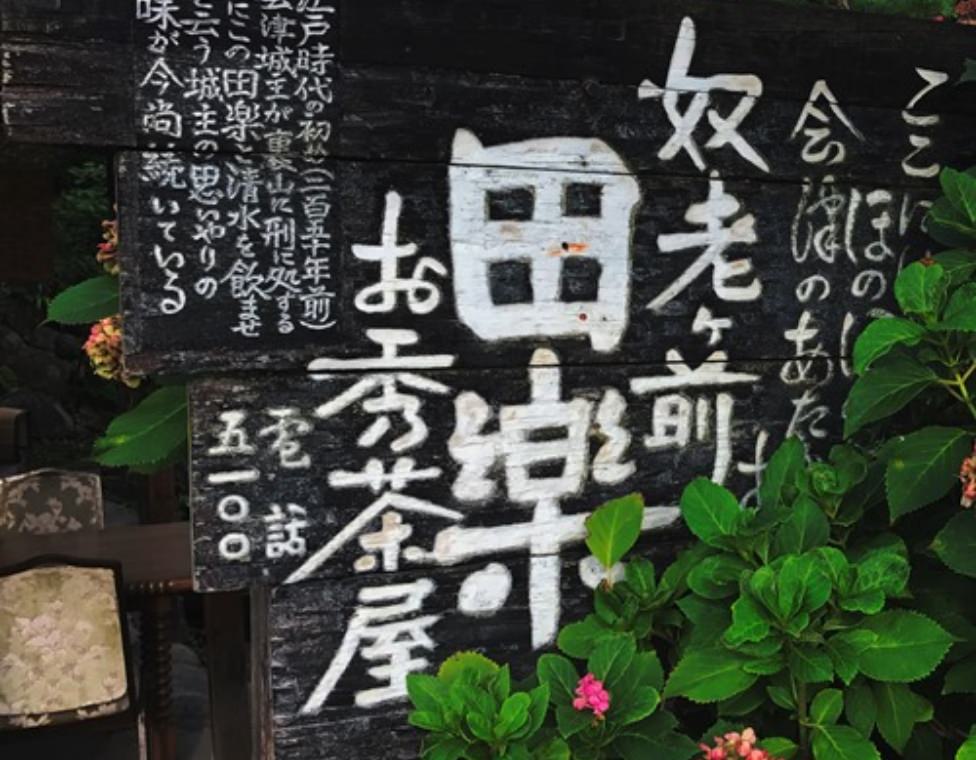 ここに
ほのに
会津のあた
は
奴老ヶ前
田楽
お秀茶屋
江戸時代の初め(三百五十年前)
会津城主が裏山に刑に処する
にこの田楽と清水を飲ませ
と云う城主の思いやりの
味が今尚続いている
電話
五一〇〇